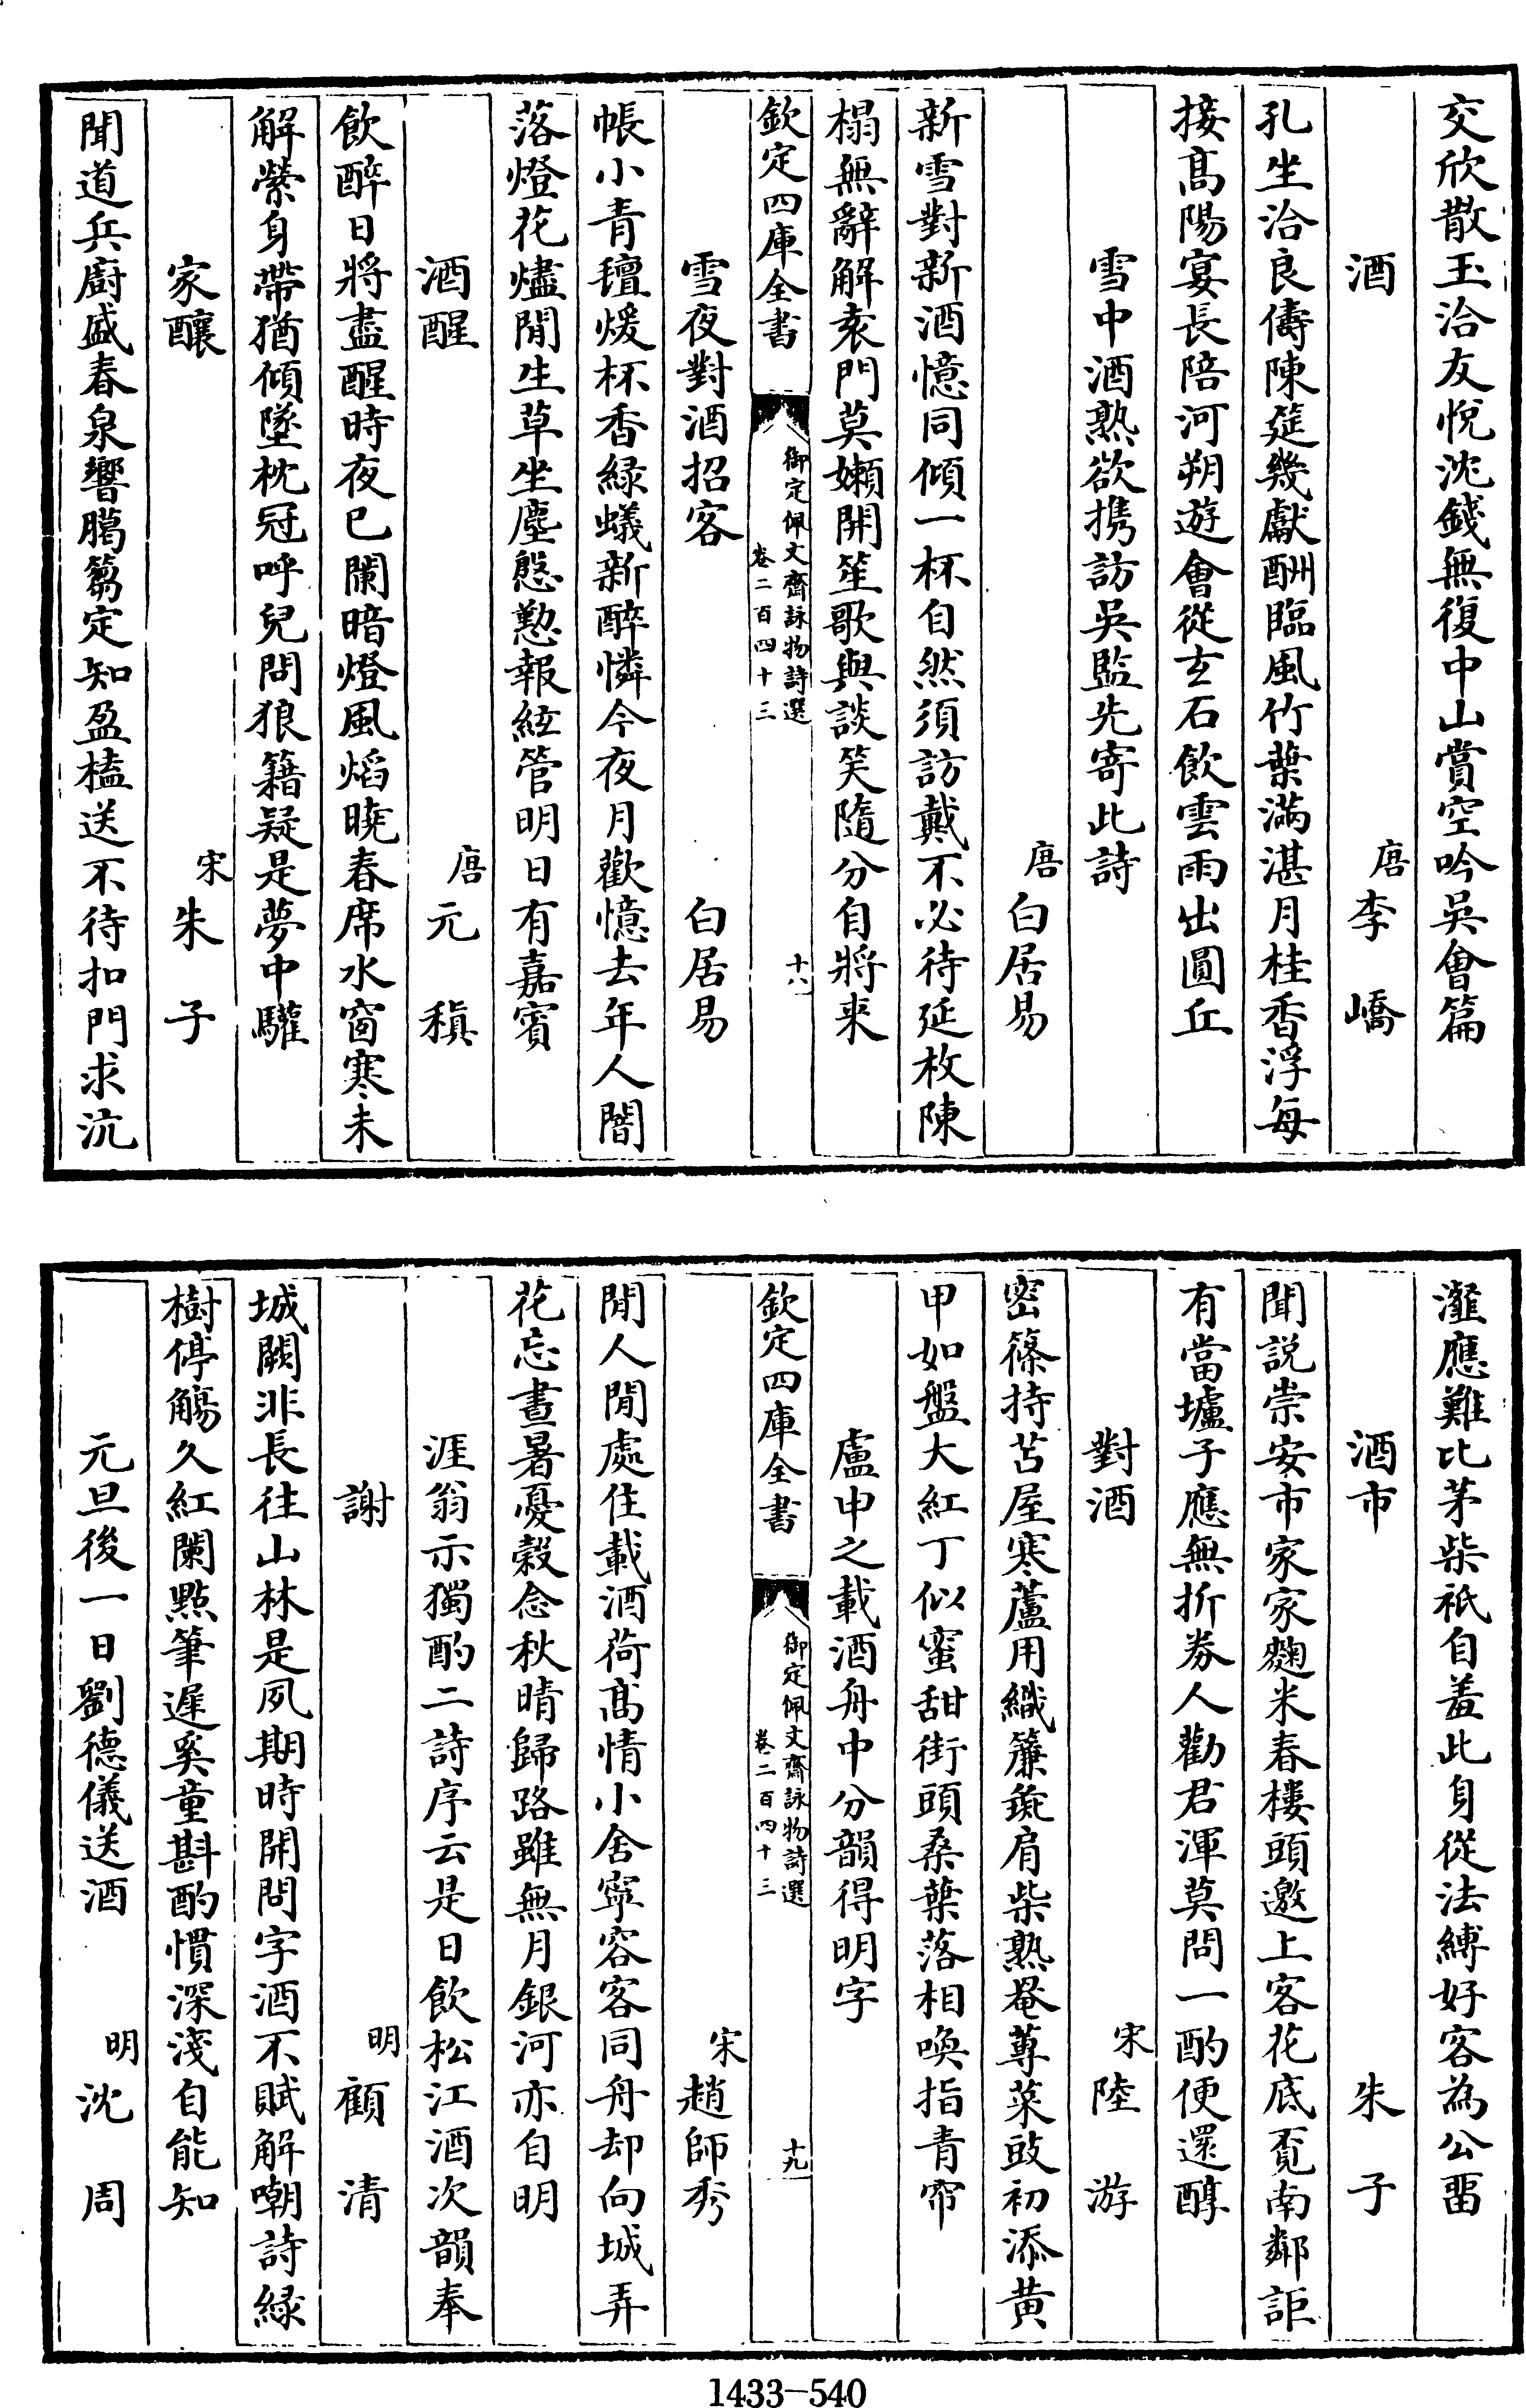 交欣散玉洽友悅沈錢無復中山賞空吟吳會篇
酒　唐李嶠
孔坐洽良儔陳筵幾獻酬臨風竹葉滿湛月桂香浮每
接髙陽宴長陪河朔遊會從玄石飲雲雨出圓丘
雪中酒熟欲携訪吳監先寄此詩
唐白居易
新雪對新酒憶同傾一杯自然須訪戴不必待延枚陳
榻無辭解袁門莫嬾開笙歌與談笑隨分自將来
欽定四庫全書　御定佩文齋詠物詩選　卷二百四十三　十八
雪夜對酒招客　白居易
帳小青氊煖杯香緑蟻新醉憐今夜月歡憶去年人闇
落燈花燼閒生草坐塵慇懃報絃管明日有嘉賓
酒醒　唐元稹
飲醉日將盡醒時夜已闌暗燈風焰曉春席水窗寒未
解縈身帶猶傾墜枕冠呼兒問狼籍疑是夢中驩
家釀　宋朱子
聞道兵廚盛春泉響臈篘定知盈榼送不待扣門求沆
瀣應難比茅柴祇自羞此身從法縛好客為公畱
酒市　朱子
聞説崇安市家家麴米春樓頭邀上客花底覔南鄰詎
有當壚子應無折券人勸君渾莫問一酌便還醇
對酒　宋陸游
密篠持苫屋寒蘆用織簾彘肩柴熟罨蓴菜豉初添黄
甲如盤大紅丁似蜜甜街頭桑葉落相喚指青帘
盧申之載酒舟中分韻得明字
欽定四庫全書　御定佩文齋詠物詩選　卷二百四十三　十九
宋趙師秀
閒人閒處住載酒荷髙情小舍寧容客同舟却向城弄
花忘晝暑憂榖念秋晴歸路雖無月銀河亦自明
涯翁示獨酌二詩序云是日飲松江酒次韻奉
謝　明顧清
城闕非長往山林是夙期時開問字酒不賦解嘲詩緑
樹停觴久紅闌㸃筆遲奚童斟酌慣深淺自能知
元旦後一日劉德儀送酒　明沈周
1433—540